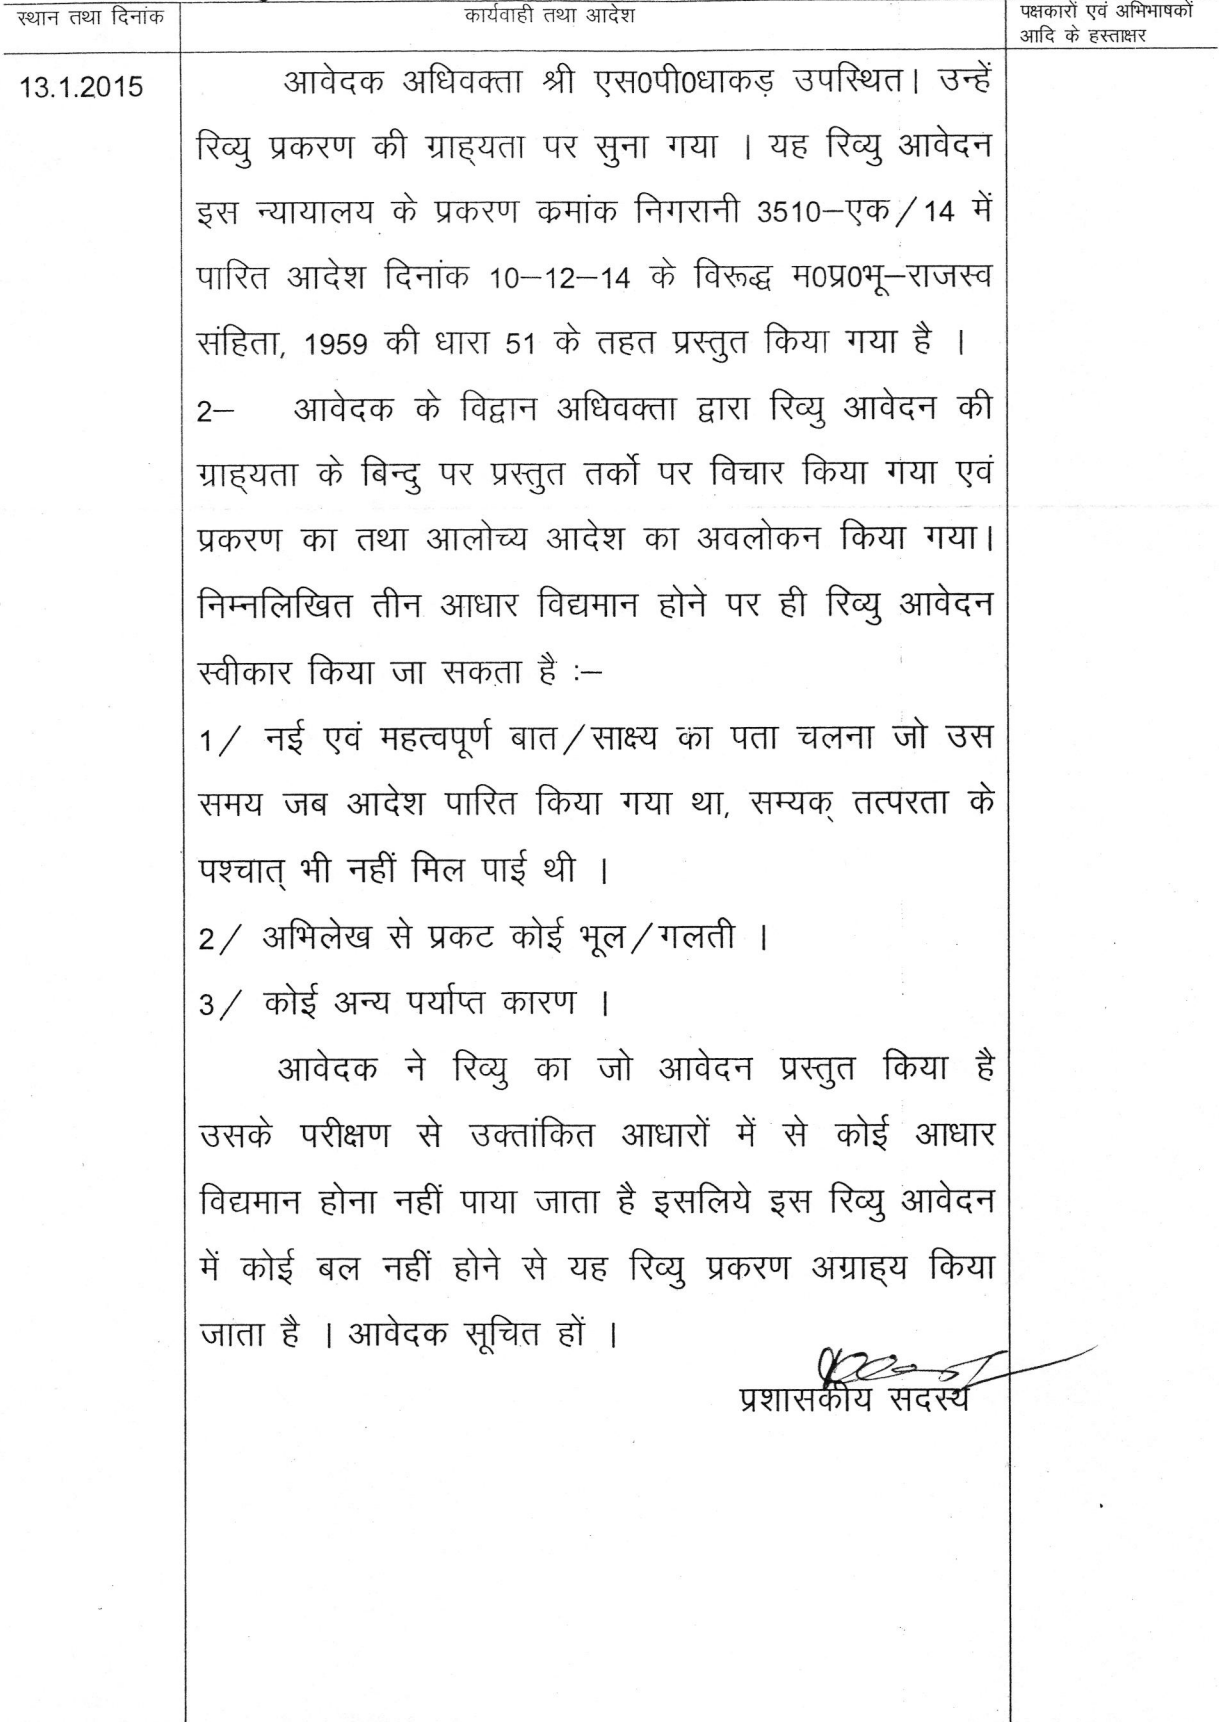 स्थान तथा दिनांक
कार्यवाही तथा आदेश
पक्षकारों एवं अभिभाषकों
आदि के हस्ताक्षर
13.1.2015
आवेदक अधिवक्ता श्री एस0पी0धाकड़ उपस्थित। उन्हें
रिव्यु प्रकरण की ग्राह्यता पर सुना गया । यह रिव्यु आवेदन
इस न्यायालय के प्रकरण क्रमांक निगरानी 3510–एक/14 में
पारित आदेश दिनांक 10–12–14 के विरूद्ध म0प्र0भू–राजस्व
संहिता, 1959 की धारा 51 के तहत प्रस्तुत किया गया है ।
2– आवेदक के विद्वान अधिवक्ता द्वारा रिव्यु आवेदन की
ग्राह्यता के बिन्दु पर प्रस्तुत तर्को पर विचार किया गया एवं
प्रकरण का तथा आलोच्य आदेश का अवलोकन किया गया।
निम्नलिखित तीन आधार विद्यमान होने पर ही रिव्यु आवेदन
स्वीकार किया जा सकता है :–
1/ नई एवं महत्वपूर्ण बात/साक्ष्य का पता चलना जो उस
समय जब आदेश पारित किया गया था, सम्यक् तत्परता के
पश्चात् भी नहीं मिल पाई थी ।
2/ अभिलेख से प्रकट कोई भूल/गलती ।
3/ कोई अन्य पर्याप्त कारण ।
आवेदक ने रिव्यु का जो आवेदन प्रस्तुत किया है
उसके परीक्षण से उक्तांकित आधारों में से कोई आधार
विद्यमान होना नहीं पाया जाता है इसलिये इस रिव्यु आवेदन
में कोई बल नहीं होने से यह रिव्यु प्रकरण अग्राह्य किया
जाता है । आवेदक सूचित हों ।
प्रशासकीय सदस्य